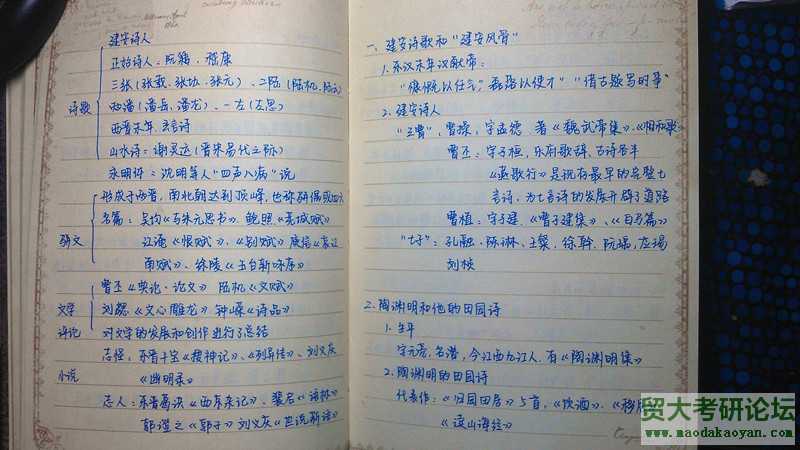 建安诗人
正始诗人：阮籍、嵇康
三张（张载、张协、张亢）、二陆（陆机、陆云）
诗歌
两潘（潘岳、潘尼）、一左（左思）
西晋末年、玄言诗
山水诗：谢灵运（晋宋易代之际）
永明诗：沈明等人"四声八病"说
形成于西晋，南北朝达到顶峰，也称骈偶或四六
名篇：吴均《与朱元思书》、鲍照《芜城赋》
骈文
江淹《恨赋》、《别赋》庾信《哀江
南赋》、徐陵《玉台新咏序》
曹丕《典论·论文》 陆机《文赋》
文学
刘勰《文心雕龙》 钟嵘《诗品》
评论
对文学的发展和创作进行了总结
志怪：东晋干宝《搜神记》、《列异传》、刘义庆
小说
《幽明录》
志人：东晋葛洪《西京杂记》、裴启《语林》
郭澄之《郭子》刘义庆《世说新语》
一、建安诗歌和"建安风骨"
1.东汉末年汉献帝：
"慷慨以任气，磊落以使才" "借古题写时事"
2.建安诗人
"三曹"，曹操，字孟德 著《魏武帝集》、《相和歌》
曹丕：字子桓，乐府歌辞、古诗各半
《燕歌行》是现有最早的完整七
言诗，为七言诗的发展开辟了道路
曹植：字子建、《曹子建集》、《白马篇》
"七子"：孔融、陈琳、王粲、徐幹、阮瑀、应玚
刘桢
二、陶渊明和他的田园诗
1.生平
字元亮，名潜，今江西九江人．有《陶渊明集》
2.陶渊明的田园诗
代表作：《归园田居》5首，《饮酒》、《移
《读山海经》
贸大考研论坛
www.maodakaoyan.com